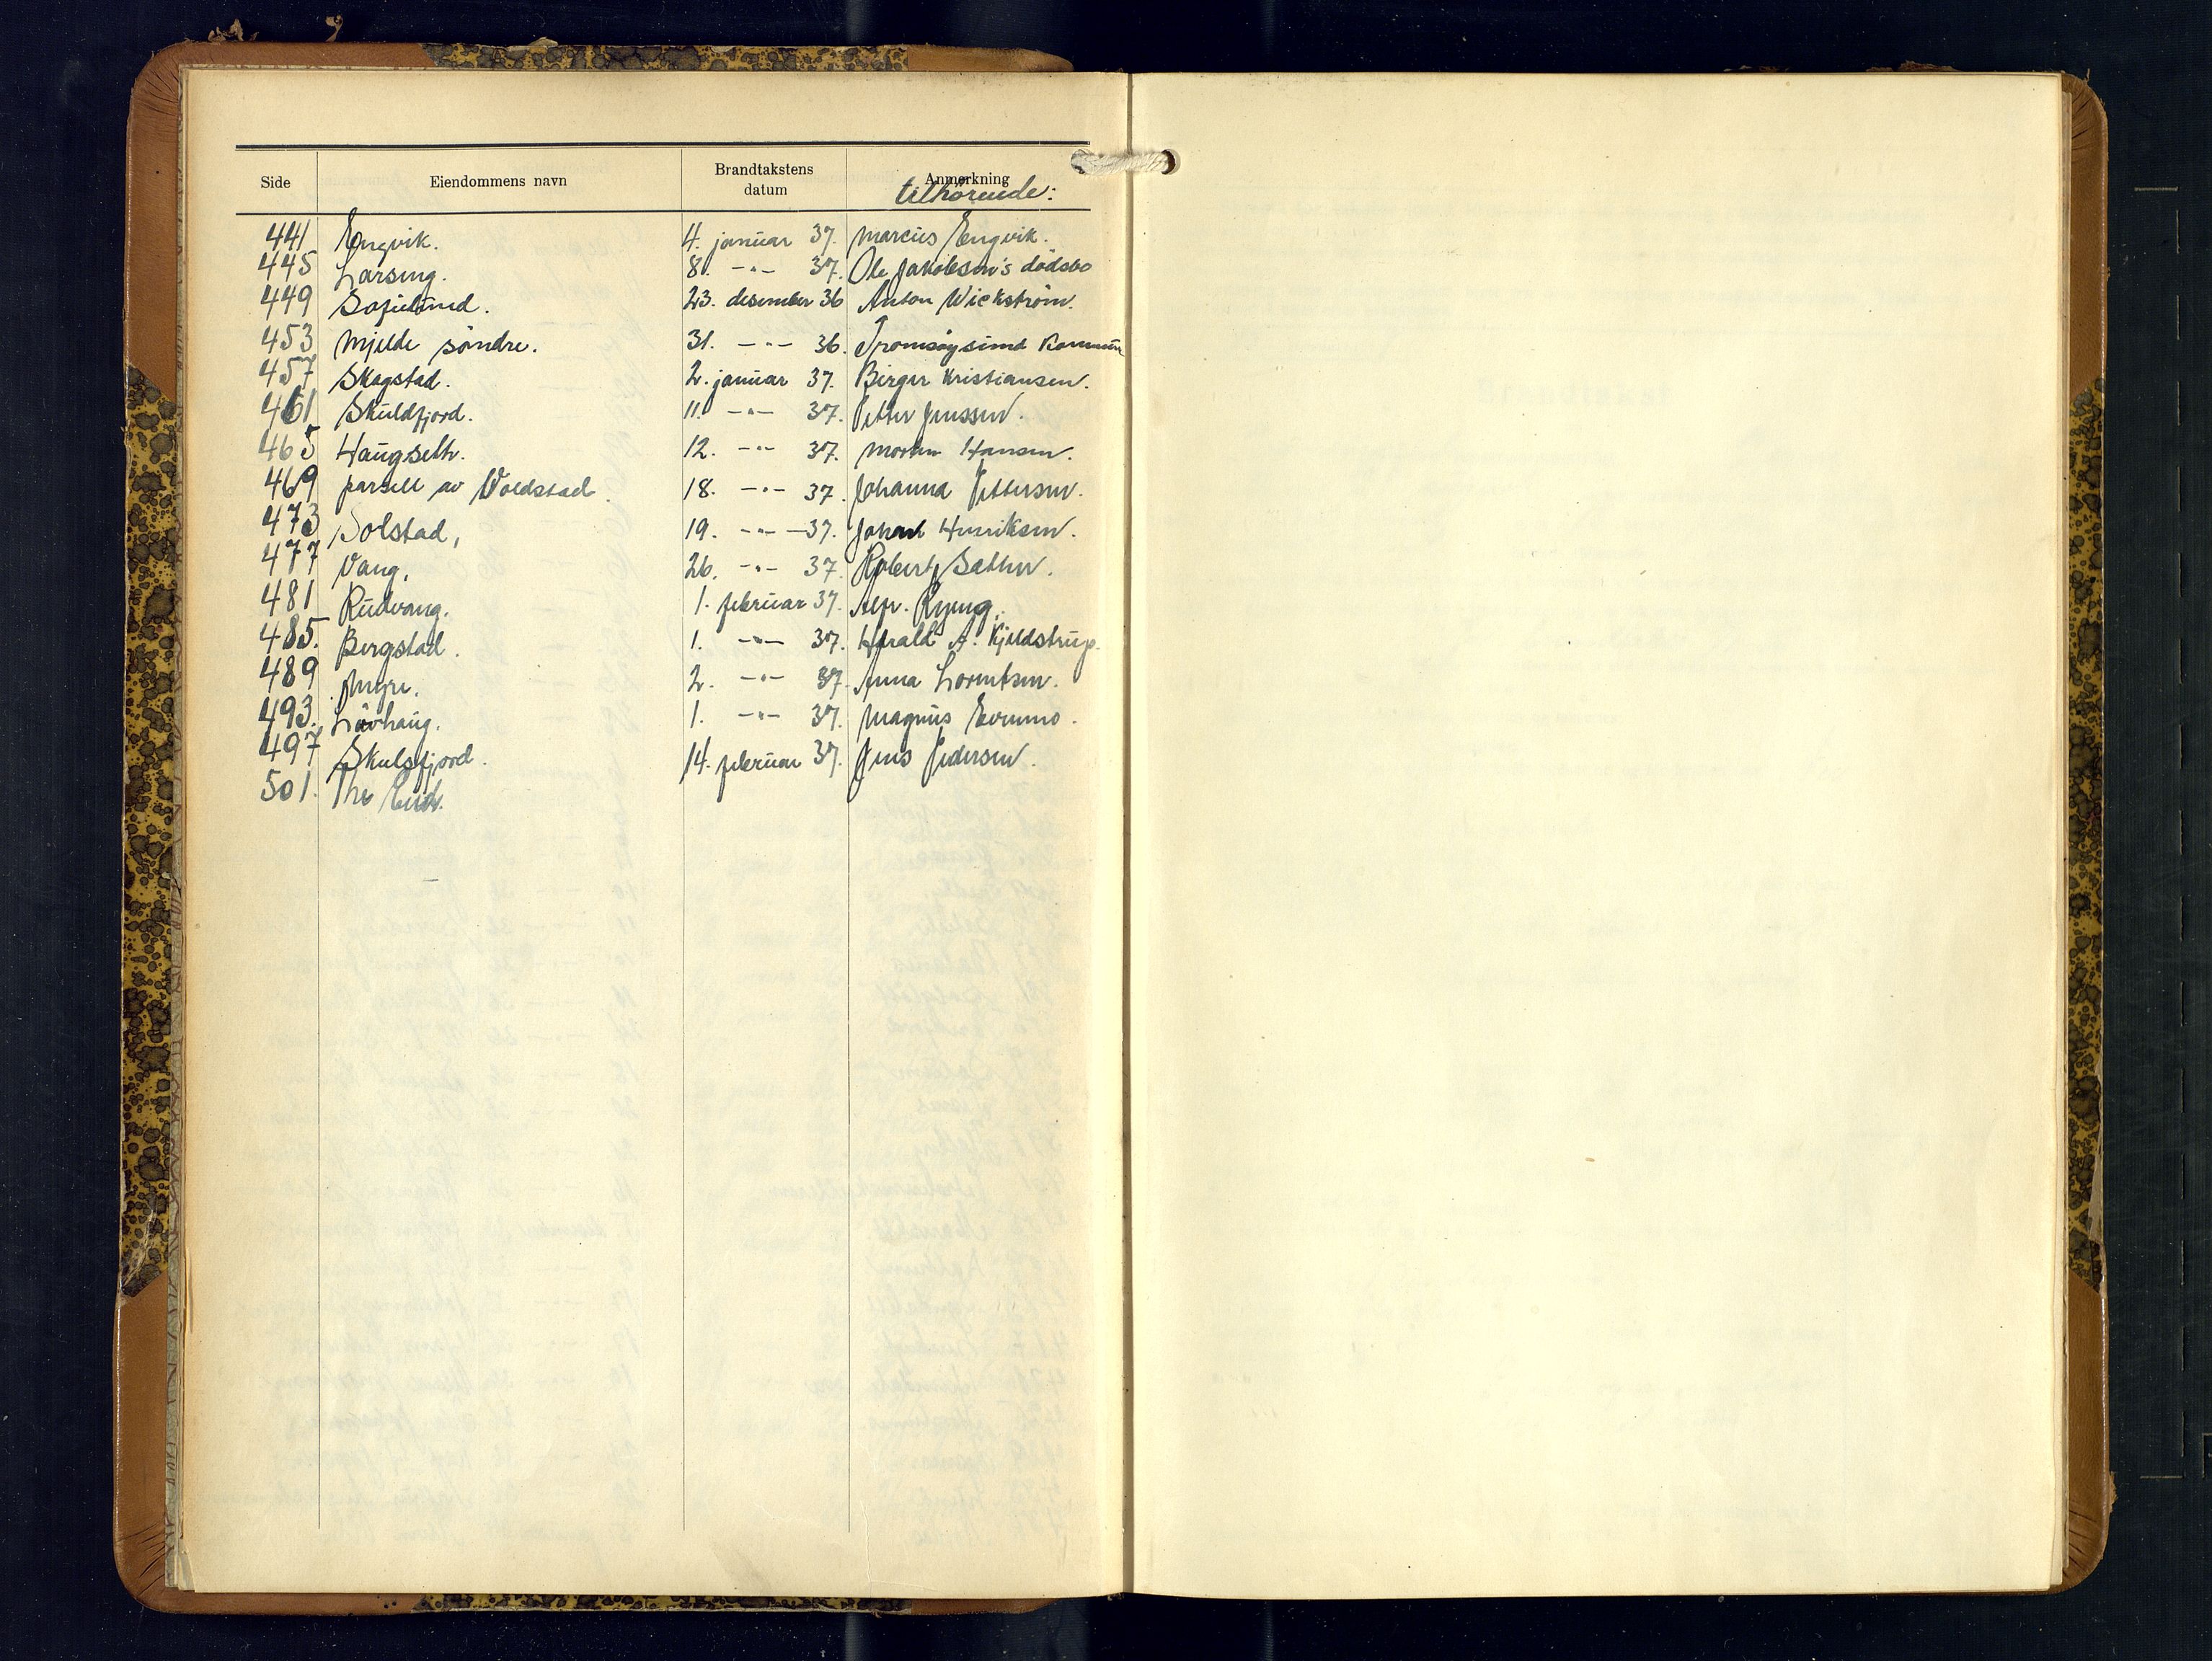 Side Eiendommens navn Brandtakstens datum Anmerkning
tilhörende:
441 Engvik. 4. januar 37. Marcus Engvik.
445 Larseng. 8. -"- 37. Ole Jakobsen's dödsbo
449 Sofielund. 23. desember 36 Anton Wickström.
453 Mjelde söndre. 31. -"- 36. Tromsöysund Kommune
457 Skogstad. 2. januar 37. Birger Kristiansen.
461 Skuldfjord. 11. -"- 37. Petter Jenssen.
465 Haugseth. 12. -"- 37. Morten Hansen.
469 parsell av Voldstad. 18. -"- 37. Johanna Pettersen.
473 Solstad, 19. -"- 37. Johan Henriksen.
477 Vang. 26. -"- 37. Robert Sæther.
481 Rudvang. 1. februar 37. Alfr. Ryeng.
485. Bergstad. 1. -"- 37. Harald A. Kjeldstrup.
489 Myre. 2. -"- 37. Anna Lorentsen.
493. Lövhaug. 1. -"- 37. Magnus Evenmo.
497 Skulsfjord. 14. februar 37. Jens Pedersen.
501. The End.